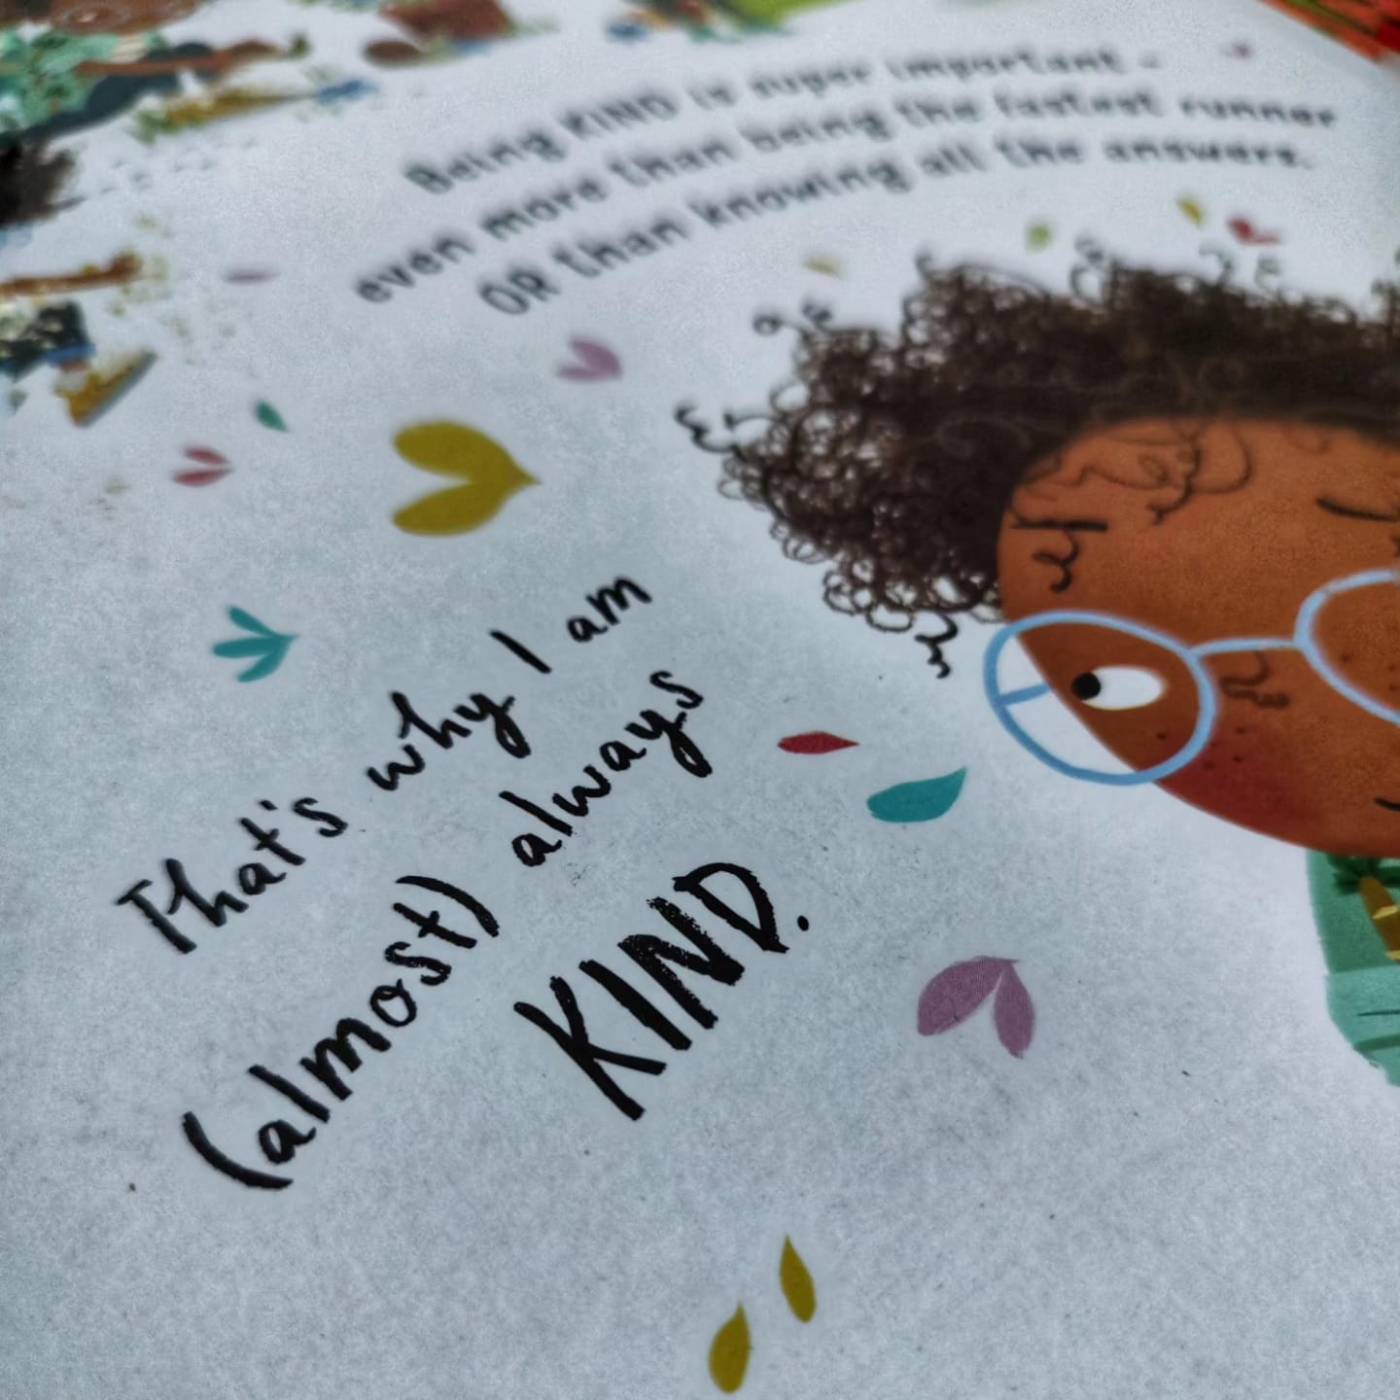 Being KIND is super important –
even more than being the fastest runner
OR than knowing all the answers.
That's why I am
(almost) always
KIND.